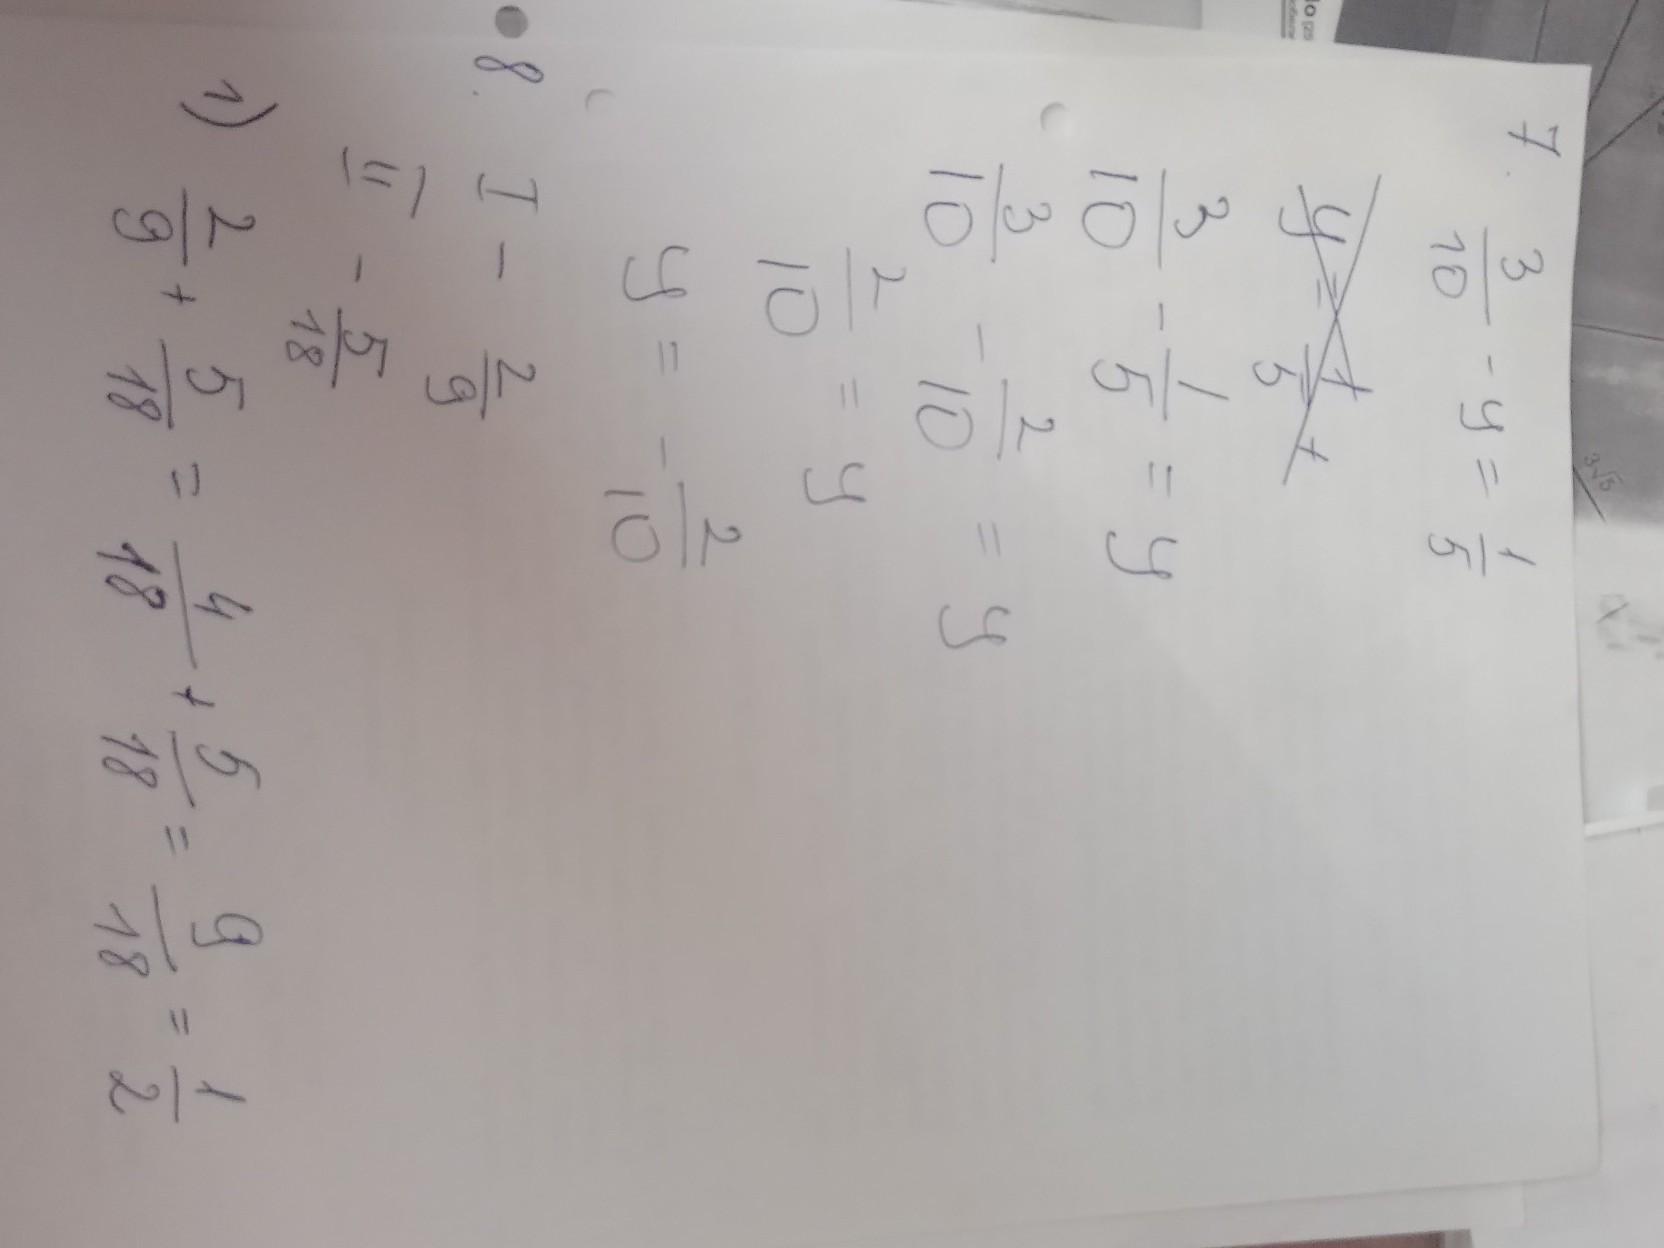 7. 3/10 - y = 1/5
y = 1/5 +
3/10 - 1/5 = y
3/10 - 2/10 = y
2/10 = y
y = - 2/10
8. I - 2/9
II - 5/18
1) 2/9 + 5/18 = 4/18 + 5/18 = 9/18 = 1/2
3√5